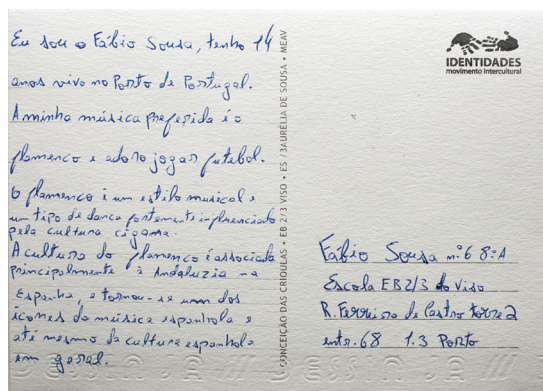 Eu sou o Fábio Sousa, tenho 14
anos vivo no Porto de Portugal.
A minha música preferida é o
flamenco e adoro jogar futebol.
O flamenco é um estilo musical e
um tipo de dança fortemente influenciado
pela cultura cigana.
A cultura do flamenco é associada
principalmente à Andaluzia na
Espanha, e tornou-se um dos
ícones da música espanhola e
até mesmo da cultura espanhola
em geral.
CONCEIÇÃO DAS CRIOULAS • EB 2/3 VISO • ES /3AURÉLIA DE SOUSA • MEAV
IDENTIDADES
movimento intercultural
Fábio Sousa nº6 8ºA
Escola EB2/3 do Viso
R. Ferreira de Castro torre 2
entr. 68 1.3 Porto